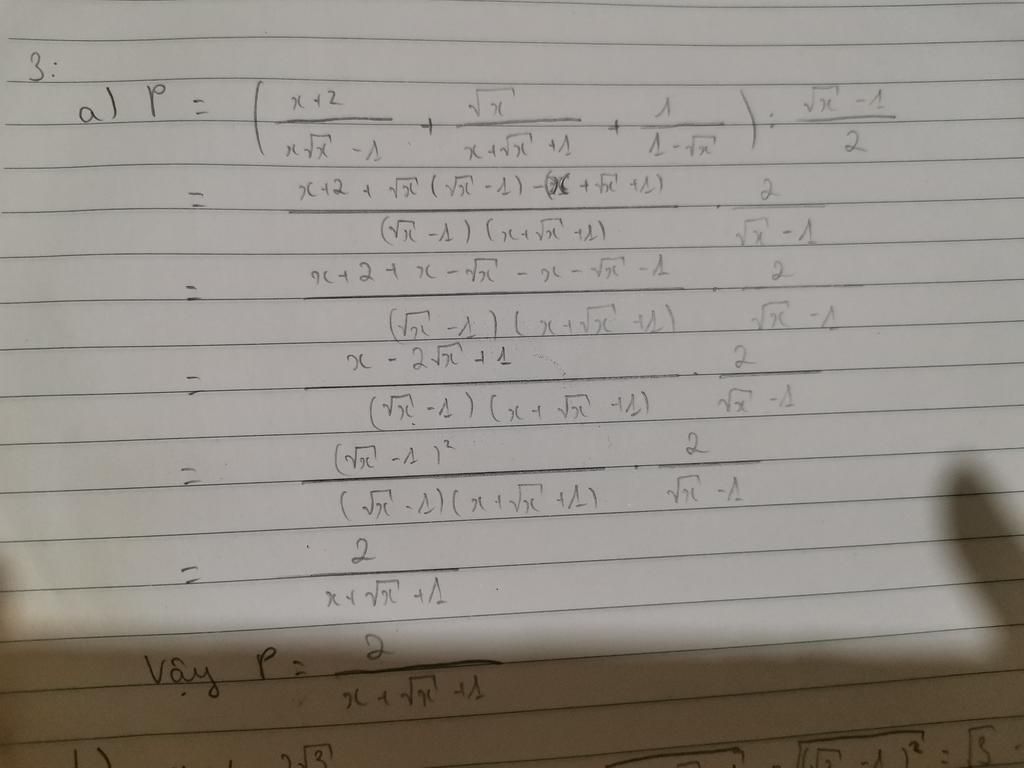 3:
a) P = ( (x+2)/(x√x -1) + √x/(x+√x +1) + 1/(1-√x) ) : (√x -1)/2
= (x+2 + √x (√x -1) -(x +√x +1))/((√x -1) (x+√x +1)) . 2/(√x -1)
= (x+2+ x -√x - x -√x -1)/((√x -1) (x+√x +1)) . 2/(√x -1)
= (x - 2√x +1)/((√x -1) (x+ √x +1)) . 2/(√x -1)
= (√x -1)²/((√x -1)(x+√x +1)) . 2/(√x -1)
= 2/(x+√x +1)
Vậy P = 2/(x+√x +1)